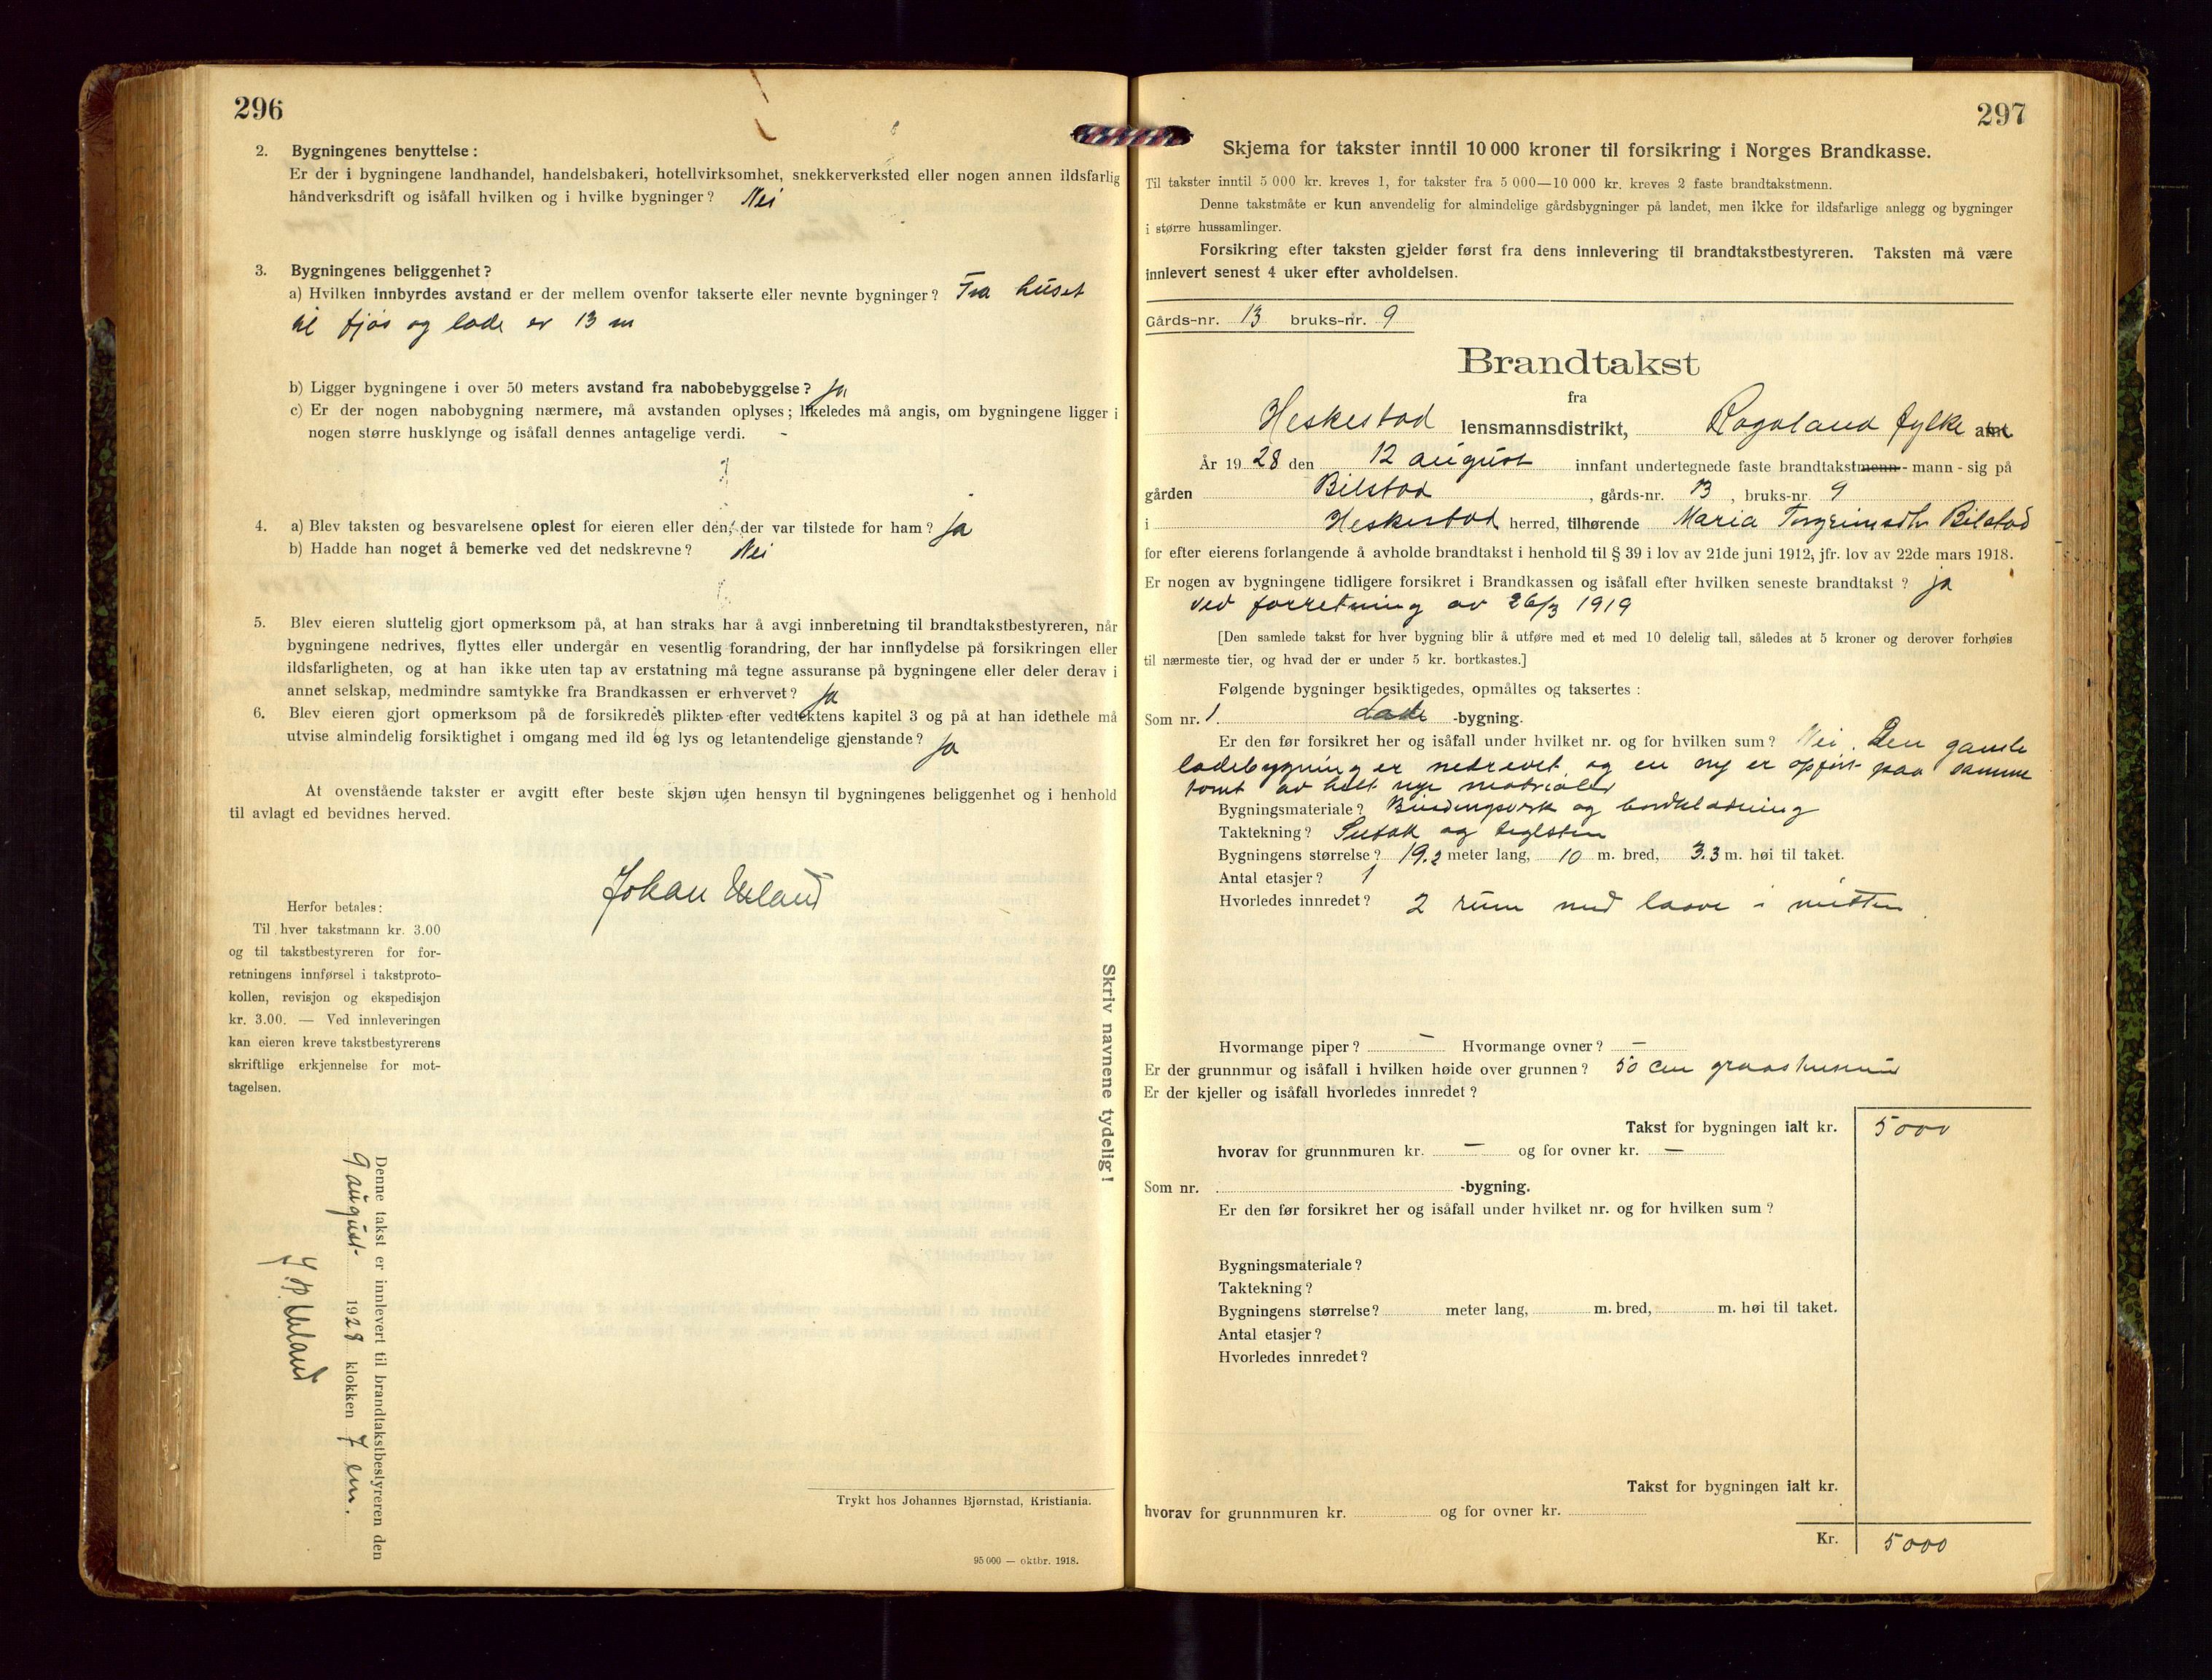 296
2. Bygningenes benyttelse:
Er der i bygningene landhandel, handelsbakeri, hotellvirksomhet, snekkerverksted eller nogen annen ildsfarlig
håndverksdrift og isåfall hvilken og i hvilke bygninger? Nei
3. Bygningenes beliggenhet?
a) Hvilken innbyrdes avstand er der mellem ovenfor takserte eller nevnte bygninger? Fra huset
til fjøs og lade er 13 m
b) Ligger bygningene i over 50 meters avstand fra nabobebyggelse? ja
c) Er der nogen nabobygning nærmere, må avstanden oplyses; likeledes må angis, om bygningene ligger i
nogen større husklynge og isåfall dennes antagelige verdi. -
4. a) Blev taksten og besvarelsene oplest for eieren eller den, der var tilstede for ham? ja
b) Hadde han noget å bemerke ved det nedskrevne? Nei
5. Blev eieren sluttelig gjort opmerksom på, at han straks har å avgi innberetning til brandtakstbestyreren, når
bygningene nedrives, flyttes eller undergår en vesentlig forandring, der har innflydelse på forsikringen eller
ildsfarligheten, og at han ikke uten tap av erstatning må tegne assuranse på bygningene eller deler derav i
annet selskap, medmindre samtykke fra Brandkassen er erhvervet? ja
6. Blev eieren gjort opmerksom på de forsikredes plikter efter vedtektens kapitel 3 og på at han idethele må
utvise almindelig forsiktighet i omgang med ild og lys og letantendelige gjenstande? ja
At ovenstående takster er avgitt efter beste skjøn uten hensyn til bygningenes beliggenhet og i henhold
til avlagt ed bevidnes herved.
Johan Ueland
Herfor betales:
Til hver takstmann kr. 3.00
og til takstbestyreren for for-
retningens innførsel i takstproto-
kollen, revisjon og ekspedisjon
kr. 3.00. — Ved innleveringen
kan eieren kreve takstbestyrerens
skriftlige erkjennelse for mot-
tagelsen.
Skriv navnene tydelig!
Denne takst er innlevert til brandtakstbestyreren den
9 august 1928 klokken 7 em.
Ueland
Trykt hos Johannes Bjørnstad, Kristiania.
95 000 — oktbr. 1918.
297
Skjema for takster inntil 10 000 kroner til forsikring i Norges Brandkasse.
Til takster inntil 5 000 kr. kreves 1, for takster fra 5 000—10 000 kr. kreves 2 faste brandtakstmenn.
Denne takstmåte er kun anvendelig for almindelige gårdsbygninger på landet, men ikke for ildsfarlige anlegg og bygninger
i større hussamlinger.
Forsikring efter taksten gjelder først fra dens innlevering til brandtakstbestyreren. Taksten må være
innlevert senest 4 uker efter avholdelsen.
Gårds-nr. 13 bruks-nr. 9
Brandtakst
fra
Heskestad lensmannsdistrikt, Rogaland fylke amt
År 1928 den 12 august innfant undertegnede faste brandtakstmenn - mann - sig på
gården Bilstad, gårds-nr. 13, bruks-nr. 9
i Heskestad herred, tilhørende Maria Torgeirsdtr Bilstad
for efter eierens forlangende å avholde brandtakst i henhold til § 39 i lov av 21de juni 1912, jfr. lov av 22de mars 1918.
Er nogen av bygningene tidligere forsikret i Brandkassen og isåfall efter hvilken seneste brandtakst? ja
ved forretning av 26/3 1919
[Den samlede takst for hver bygning blir å utføre med et med 10 delelig tall, således at 5 kroner og derover forhøies
til nærmeste tier, og hvad der er under 5 kr. bortkastes.]
Følgende bygninger besiktigedes, opmåltes og taksertes:
Som nr. 1 Lade -bygning.
Er den før forsikret her og isåfall under hvilket nr. og for hvilken sum? Nei. Den gamle
ladebygning er nedrevet og en ny er opført paa samme
tomt av helt nye materialer
Bygningsmateriale? Bindingsverk og bordklædning
Taktekning? Sutak og teglsten
Bygningens størrelse? 19.2 meter lang, 10 m. bred, 3.3 m. høi til taket.
Antal etasjer? 1
Hvorledes innredet? 2 rum med laave i midten
Hvormange piper? — Hvormange ovner? —
Er der grunnmur og isåfall i hvilken høide over grunnen? 50 cm graastensmur
Er der kjeller og isåfall hvorledes innredet?
Takst for bygningen ialt kr. 5000
hvorav for grunnmuren kr. — og for ovner kr. —
Som nr. -bygning.
Er den før forsikret her og isåfall under hvilket nr. og for hvilken sum?
Bygningsmateriale?
Taktekning?
Bygningens størrelse? meter lang, m. bred, m. høi til taket.
Antal etasjer?
Hvorledes innredet?
Takst for bygningen ialt kr.
hvorav for grunnmuren kr. og for ovner kr.
Kr. 5000